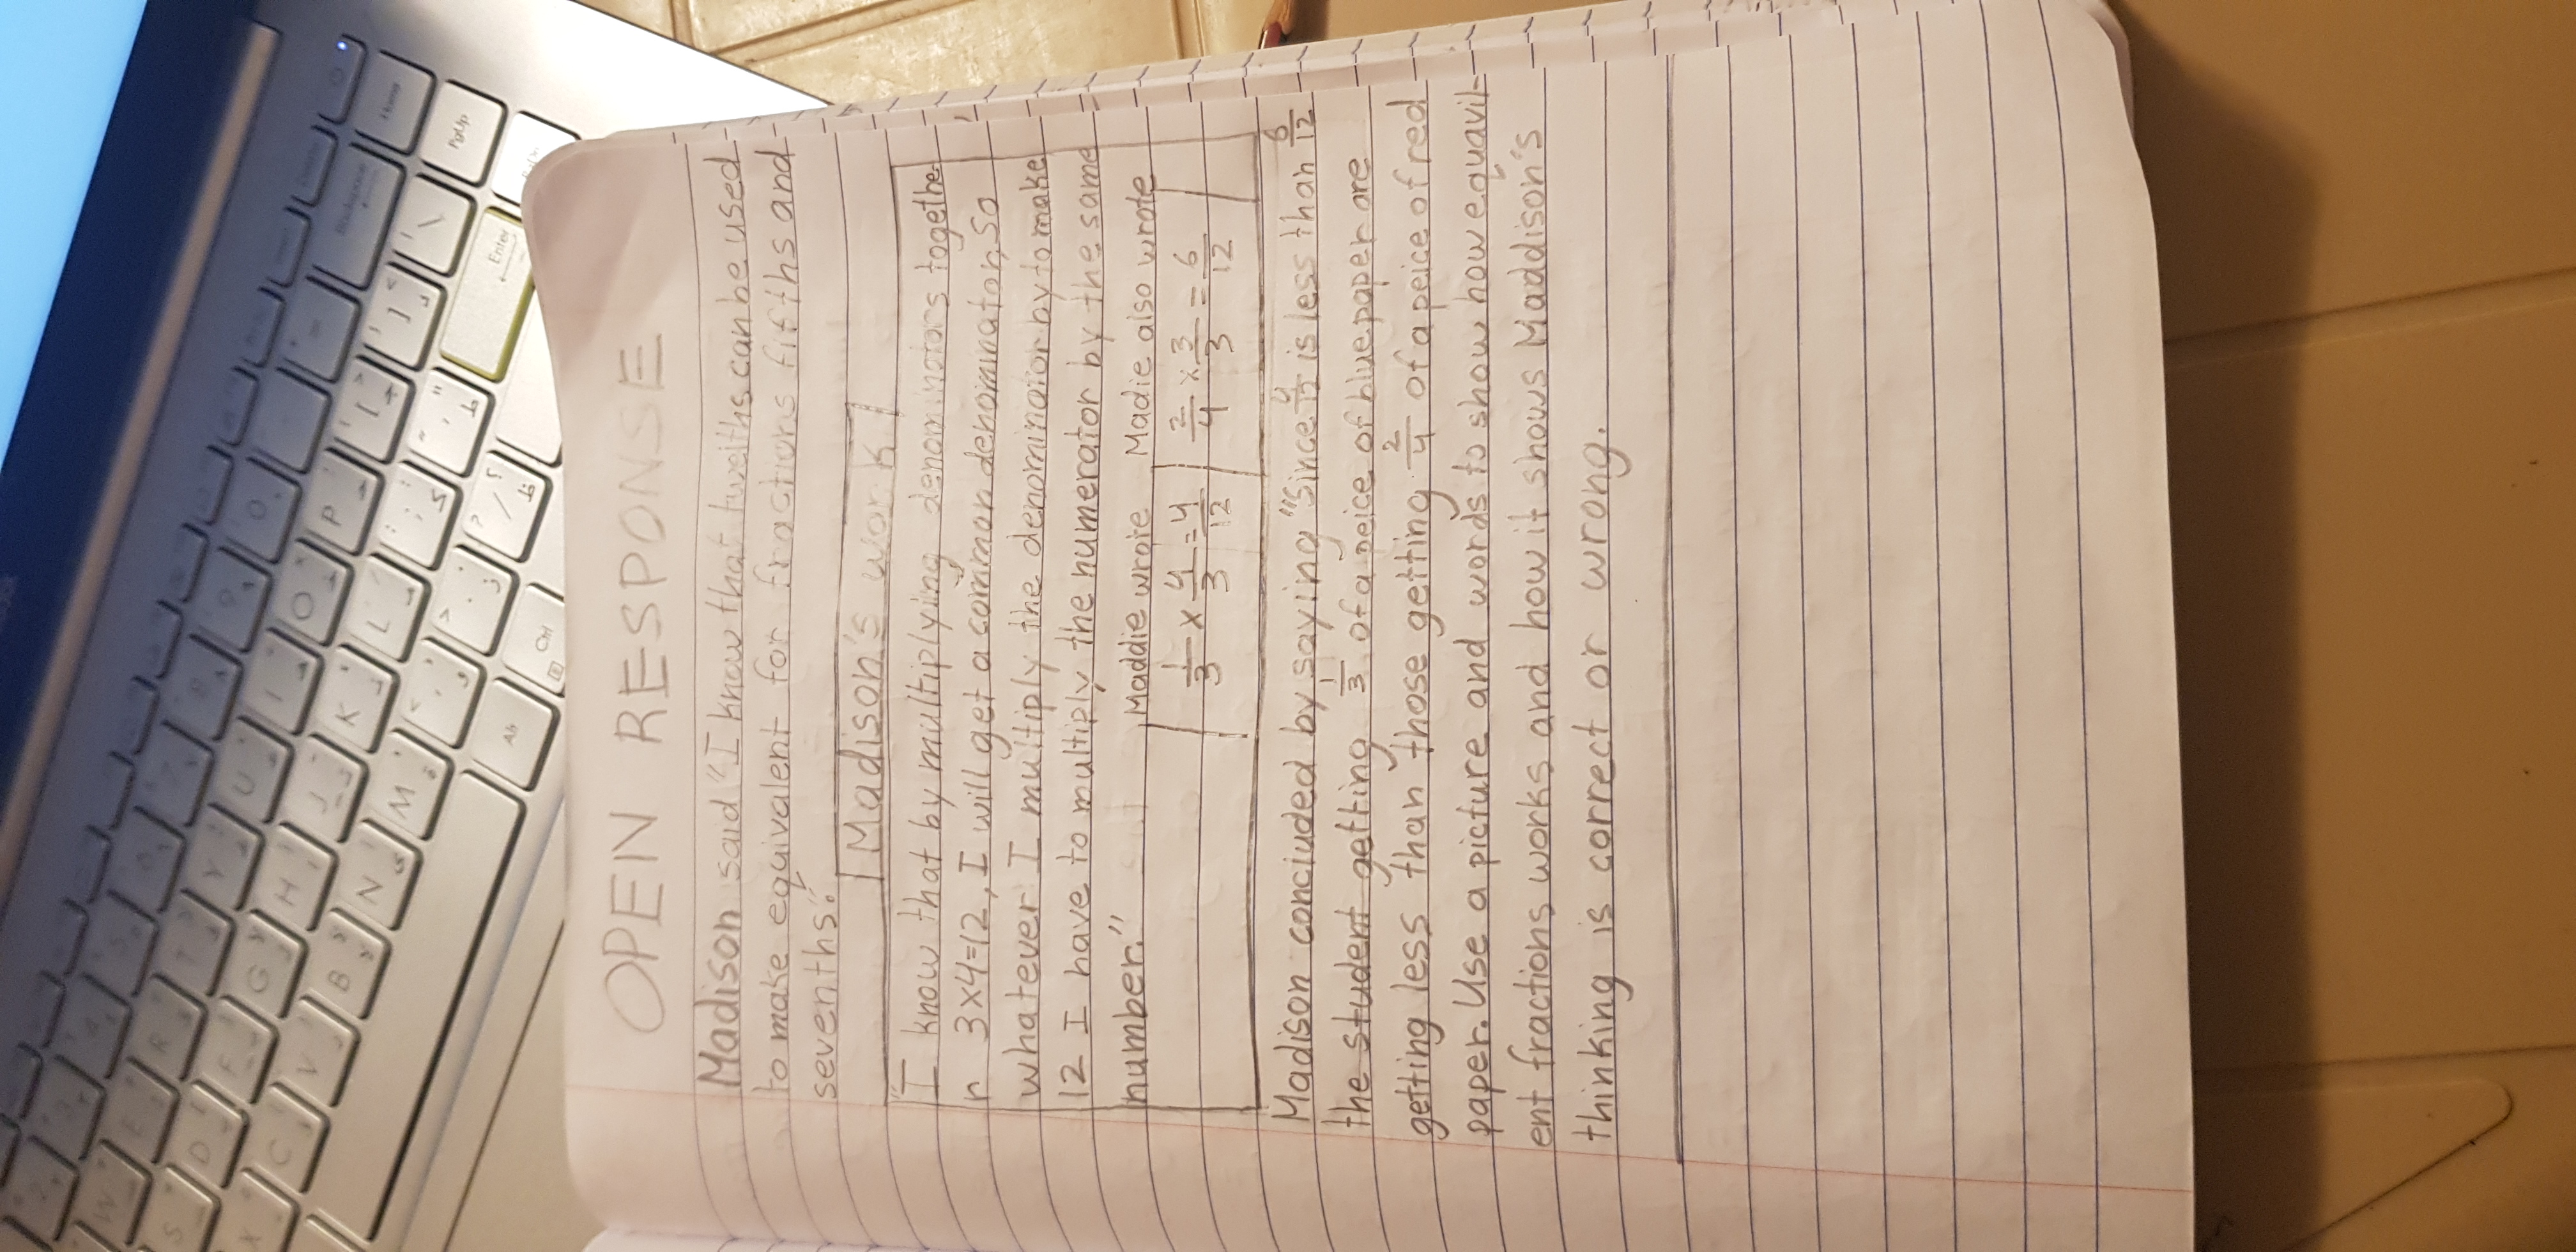 W E R T Y U I O P
S D F G H J K L
X C V B N M
Backspace
Home
PgUp
Enter
Alt
Ctrl
OPEN RESPONSE
Madison said "I know that twelths can be used
to make equivalent for fractions fifths and
sevenths."
Madison's work
"I know that by multiplying denominators togethe
r 3x4=12, I will get a common denominator, So
whatever I multiply the denominator by to make
12 I have to multiply the numerator by the same
number."
Maddie wrote Madie also wrote
1/3 x 4/3 = 4/12 2/4 x 3/3 = 6/12
Madison concluded by saying "Since 4/12 is less than 6/12
the student getting 1/3 of a peice of blue paper are
getting less than those getting 2/4 of a peice of red
paper. Use a picture and words to show how equavil-
ent fractions works and how it shows Maddison's
thinking is correct or wrong.